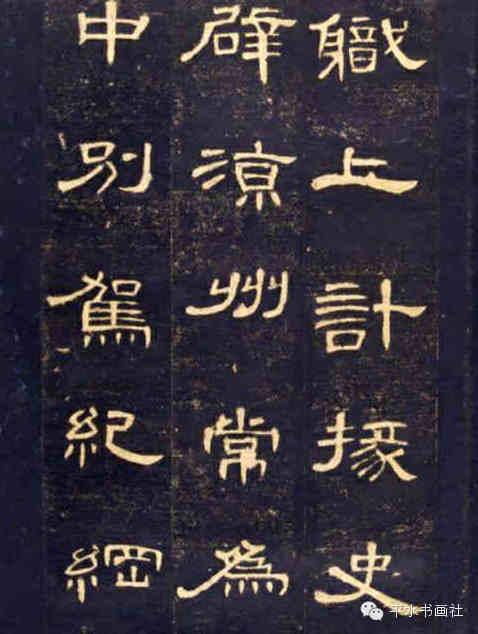 職上計掾史
辟涼州常為
中別駕紀綱
平水书画社